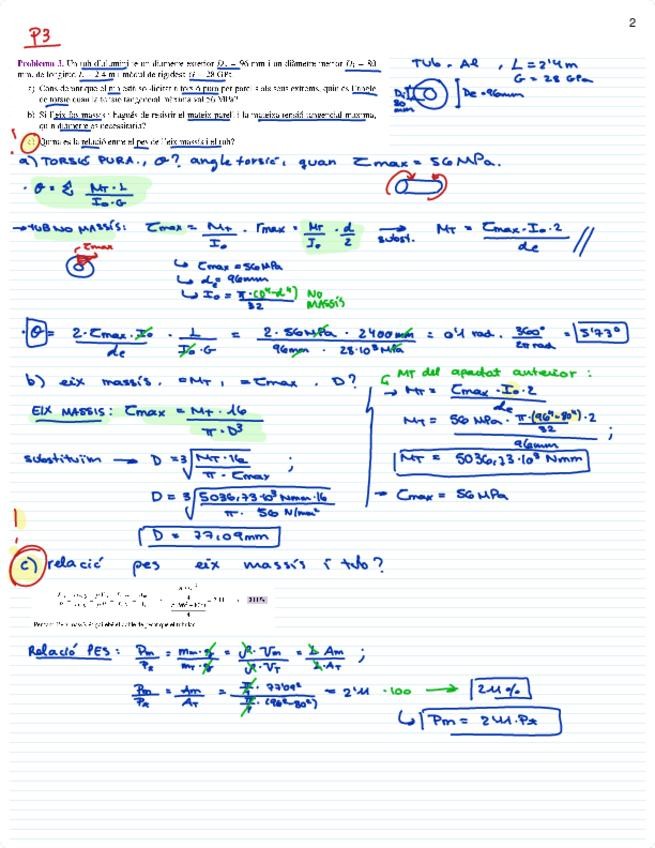 2
P3
Problema 3. Un tub d'alumini te un diàmetre exterior De = 96 mm i un diàmetre interior Di = 80
mm, de longitud L = 2,4 m i mòdul de rigidesa G = 28 GPa.
a) Considerant que el tub està sol·licitat a torsió pura per parells als seus extrems, quin és l'angle
de torsió quan la tensió tangencial màxima val 56 MPa?
b) Si l'eix fos massís i hagués de resistir el mateix parell i la mateixa tensió tangencial màxima,
quin diàmetre es necessitaria?
c) Quina és la relació entre el pes de l'eix massís i el tub?
TUB - Al , L = 2'4m
G = 28 GPa
Di 80 mm
De = 96mm
a) TORSIÓ PURA., θ? angle torsió, quan τmax = 56 MPa.
· θ = Σ MT · L / I₀ · G
→ TUB NO MASSÍS: τmax = MT / I₀ · rmax = MT / I₀ · d / 2 → subst. MT = τmax · I₀ · 2 / de //
τmax
↳ τmax = 56 MPa
↳ de = 96mm
↳ I₀ = π · (D⁴-d⁴) / 32 NO MASSÍS
· θ = 2 · τmax · I₀ / de · L / I₀ · G = 2 · 56 MPa · 2400 mm / 96mm · 28·10³ MPa = 0'1 rad · 360° / 2π rad = 5'73°
b) eix massís. = MT, = τmax . D?
MT del apartat anterior :
→ MT = τmax · I₀ · 2 / de
EIX MASSIS: τmax = MT · 16 / π · D³
MT = 56 MPa · π · (96⁴-80⁴) / 32 · 2 / 96mm ;
substituïm → D = ³√ MT · 16 / π · τmax ;
MT = 5036,73·10³ Nmm
D = ³√ 5036,73·10³ Nmm · 16 / π · 56 N/mm²
→ τmax = 56 MPa
D = 77,09mm
c) relació pes eix massís i tub?
Relació PES: Pm / PT = mm · g / mT · g = ρ · Vm / ρ · VT = L · Am / L · AT ;
Pm / PT = Am / AT = π/4 · 77'09² / π/4 · (96²-80²) = 2'11 · 100 → 211%
↳ Pm = 211 · PT